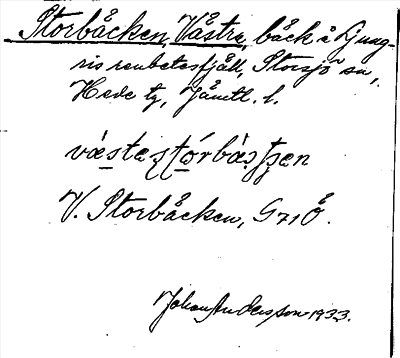 Storbäcken, Västra, bäck å Ljung-
ris renbetesfjäll, Storsjö sn,
Hede tg, Jämtl. l.
västesṭórbäçtʃen
V. Storbäcken, G71Ö.
Johan Andersson 1933.